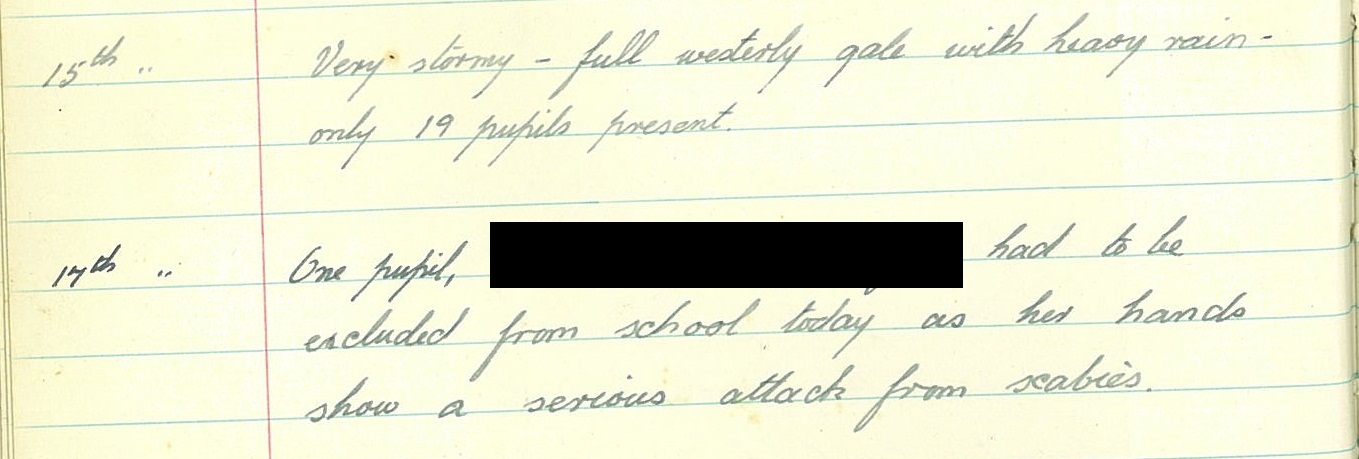 15th " Very stormy - full westerly gale with heavy rain -
only 19 pupils present.
17th " One pupil, had to be
excluded from school today as her hands
show a serious attack from scabies.